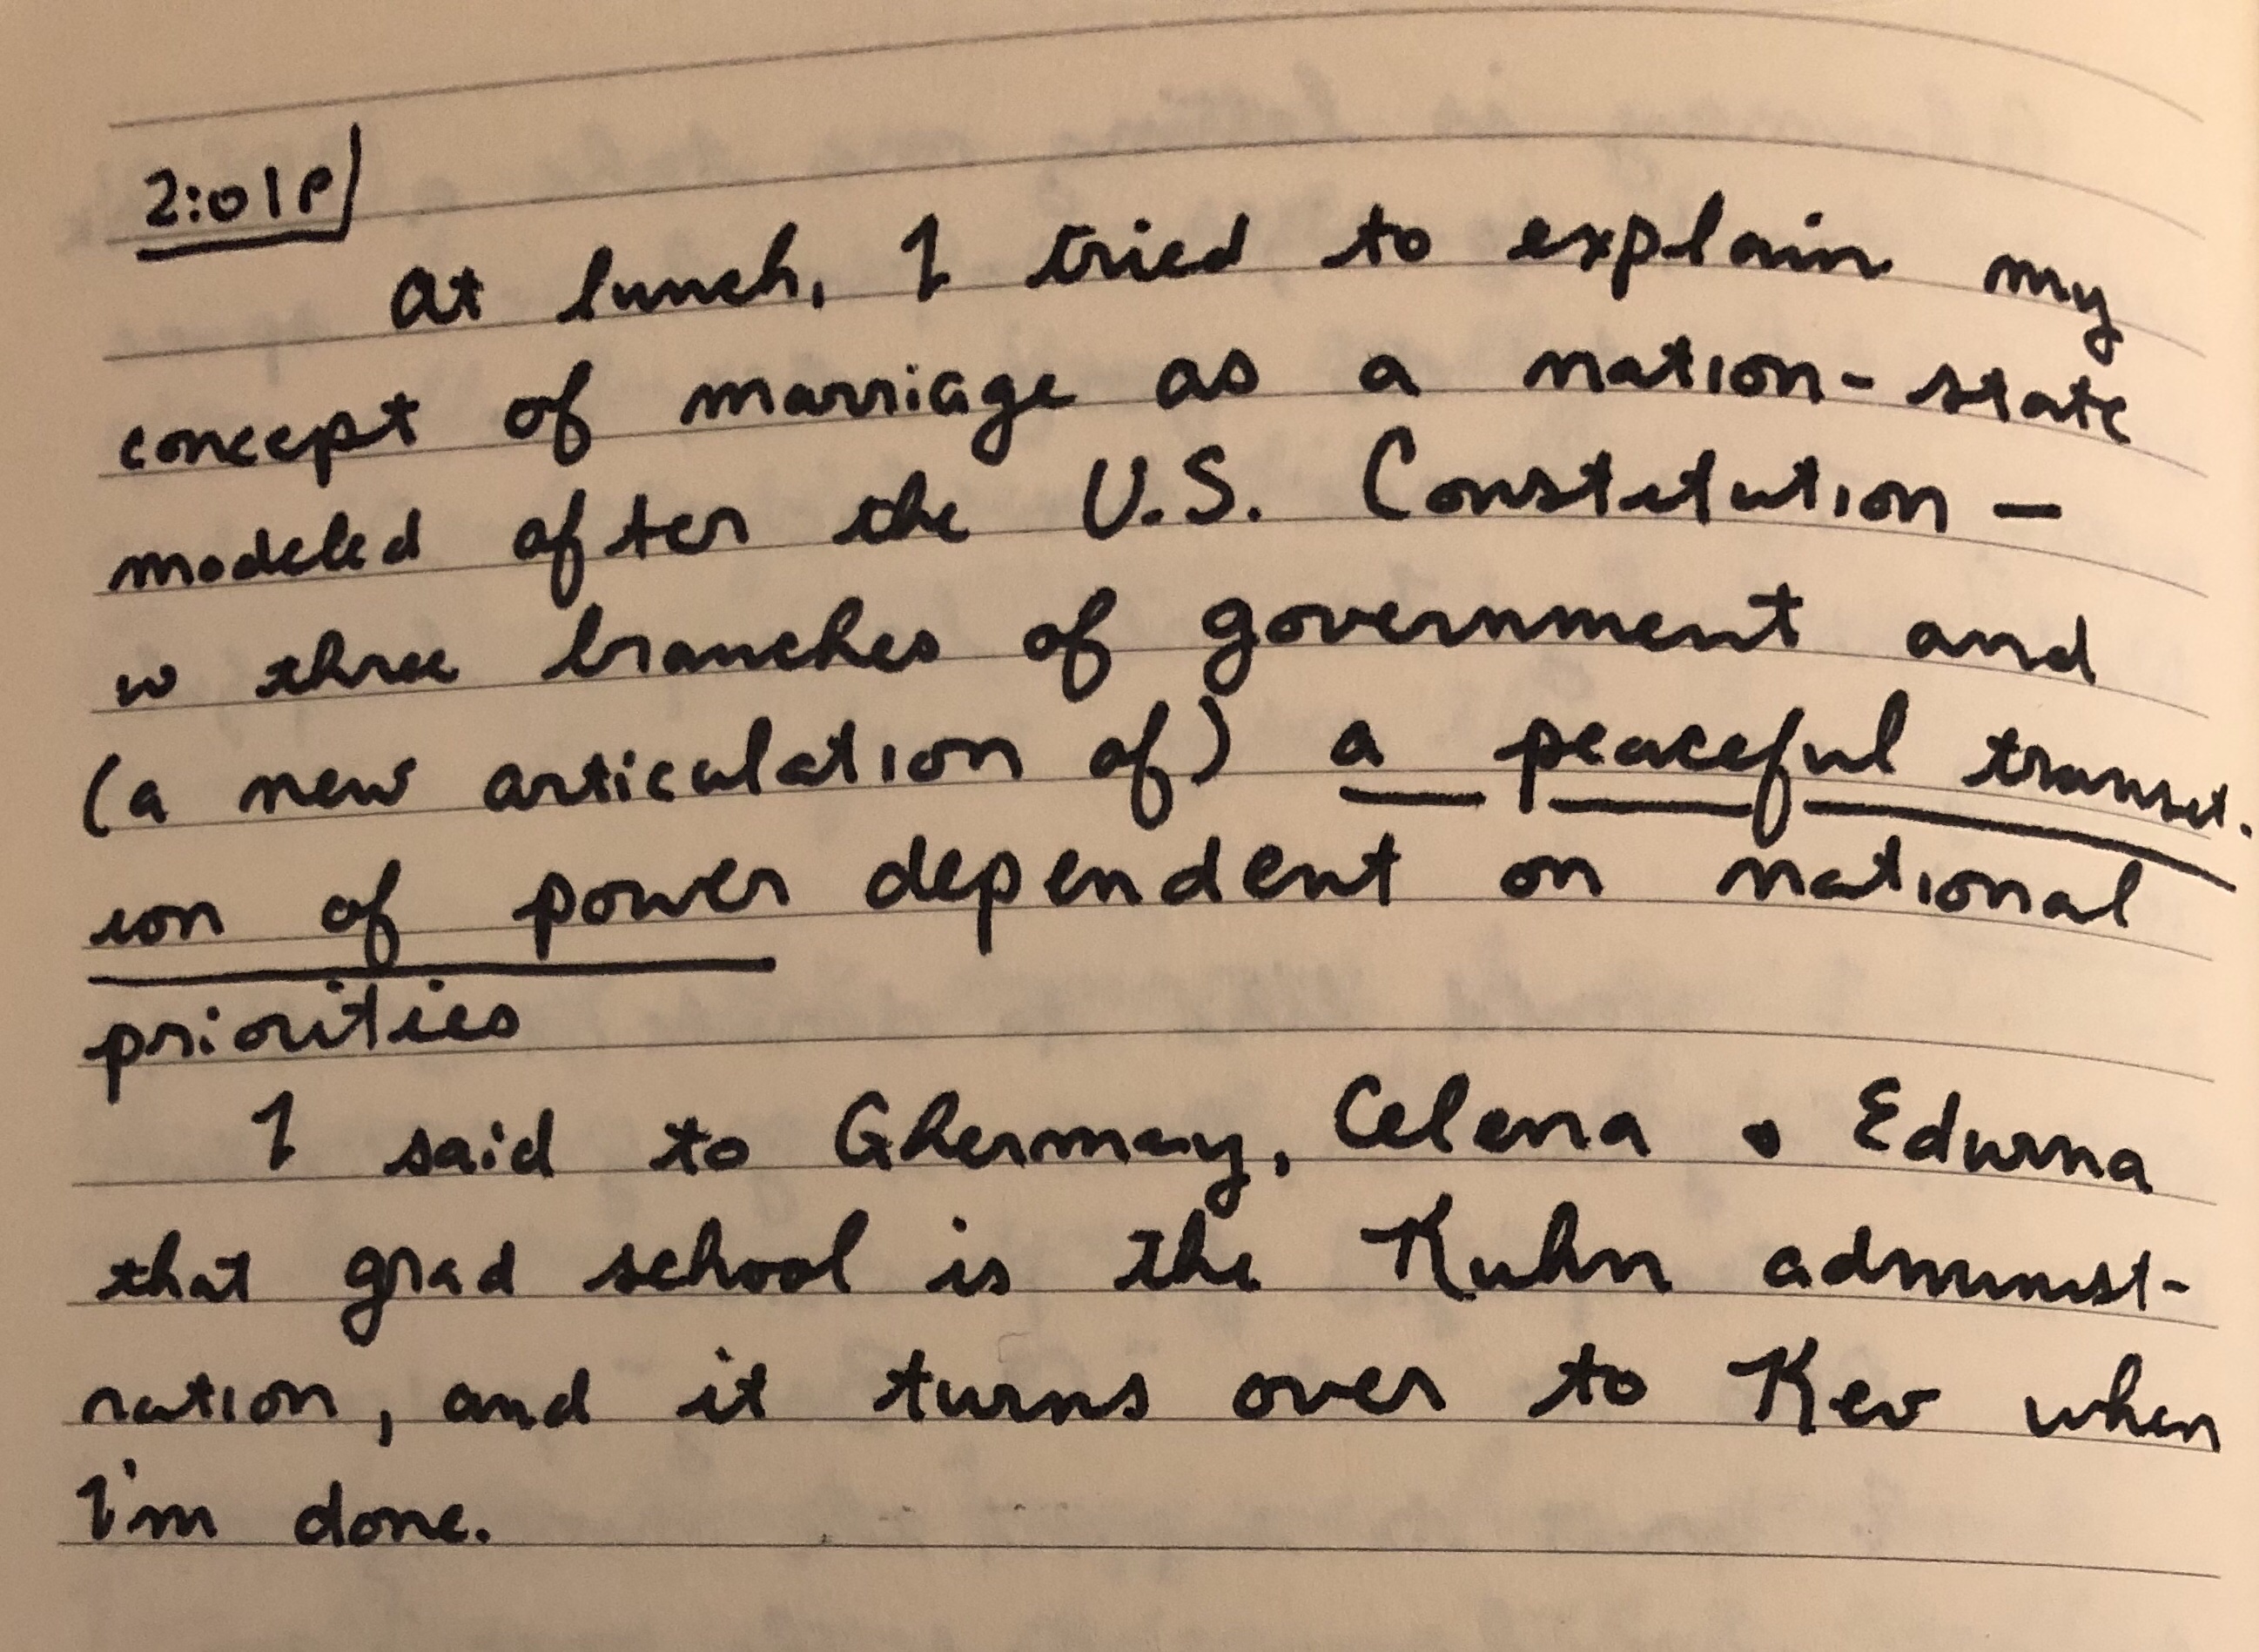 2:01P
At lunch, I tried to explain my
concept of marriage as a nation-state
modeled after the U.S. Constitution —
w three branches of government and
(a new articulation of) a peaceful transit-
ion of power dependent on national
priorities
I said to Ghermay, Celena & Edwina
that grad school is the Kuhn administ-
ration, and it turns over to Kev when
I'm done.